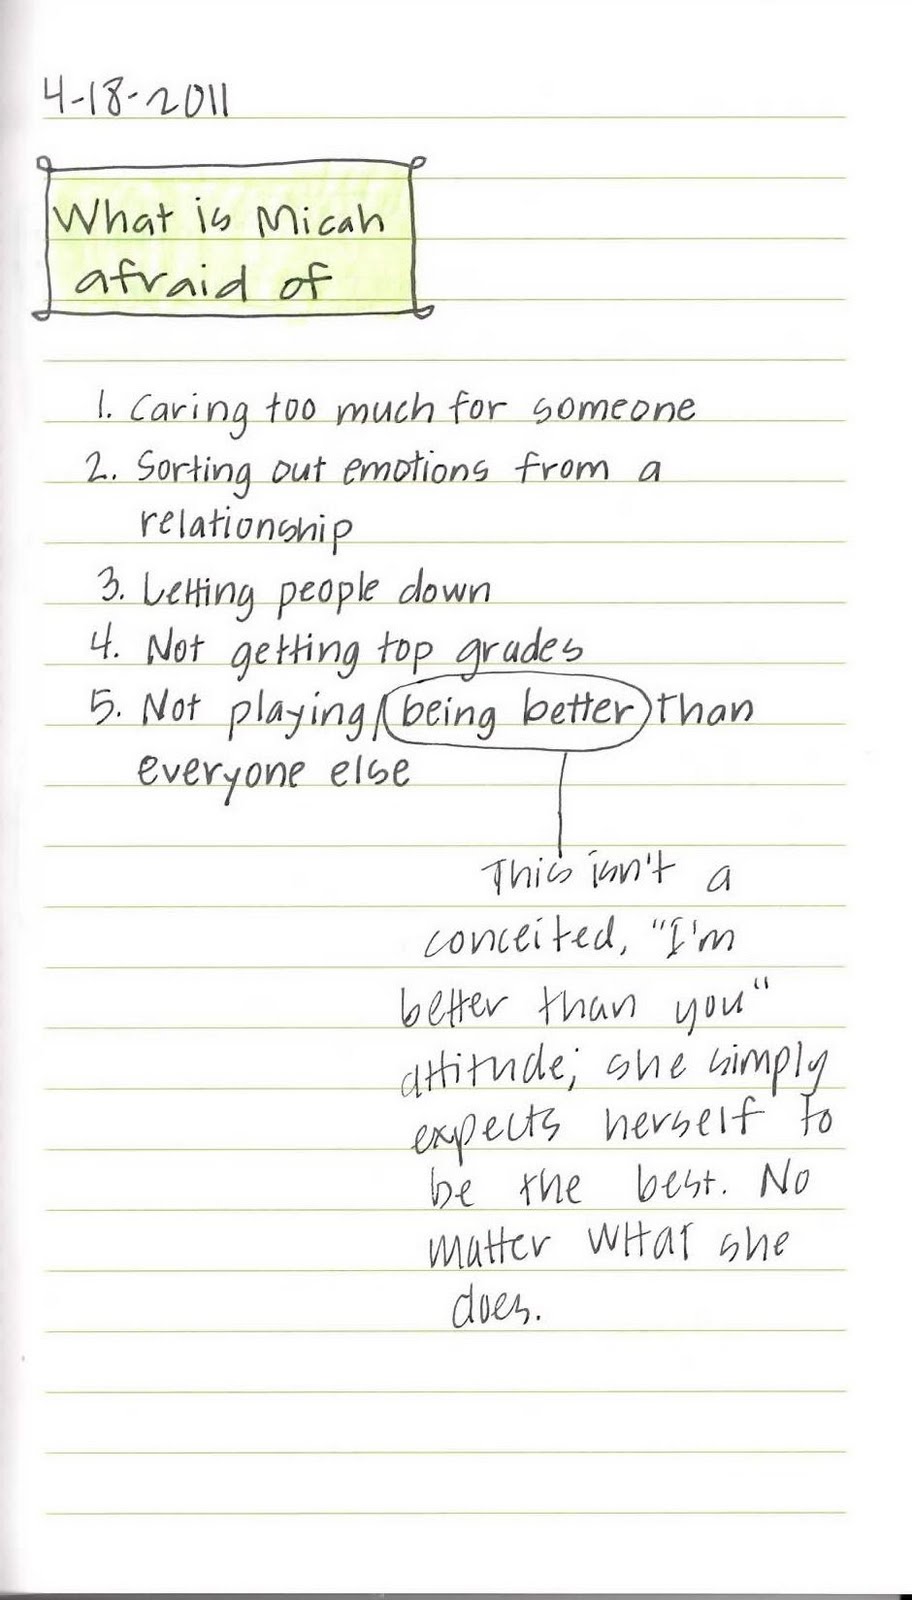 4-18-2011
What is Micah
afraid of
1. Caring too much for someone
2. Sorting out emotions from a
relationship
3. Letting people down
4. Not getting top grades
5. Not playing/being better than
everyone else
This isn't a
conceited, "I'm
better than you"
attitude; she simply
expects herself to
be the best. No
matter WHAT she
does.